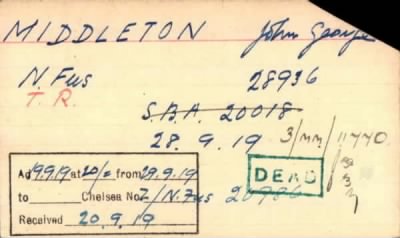 MIDDLETON John George
N. Fus 28936
T. R.
S.B.A. 20018
28.9.19 3/MM/11770
DEAD
Ad 19.9.19 at 20/= from 29.9.19
to Chelsea No 2/N.Fus 20986
Received 20.9.19